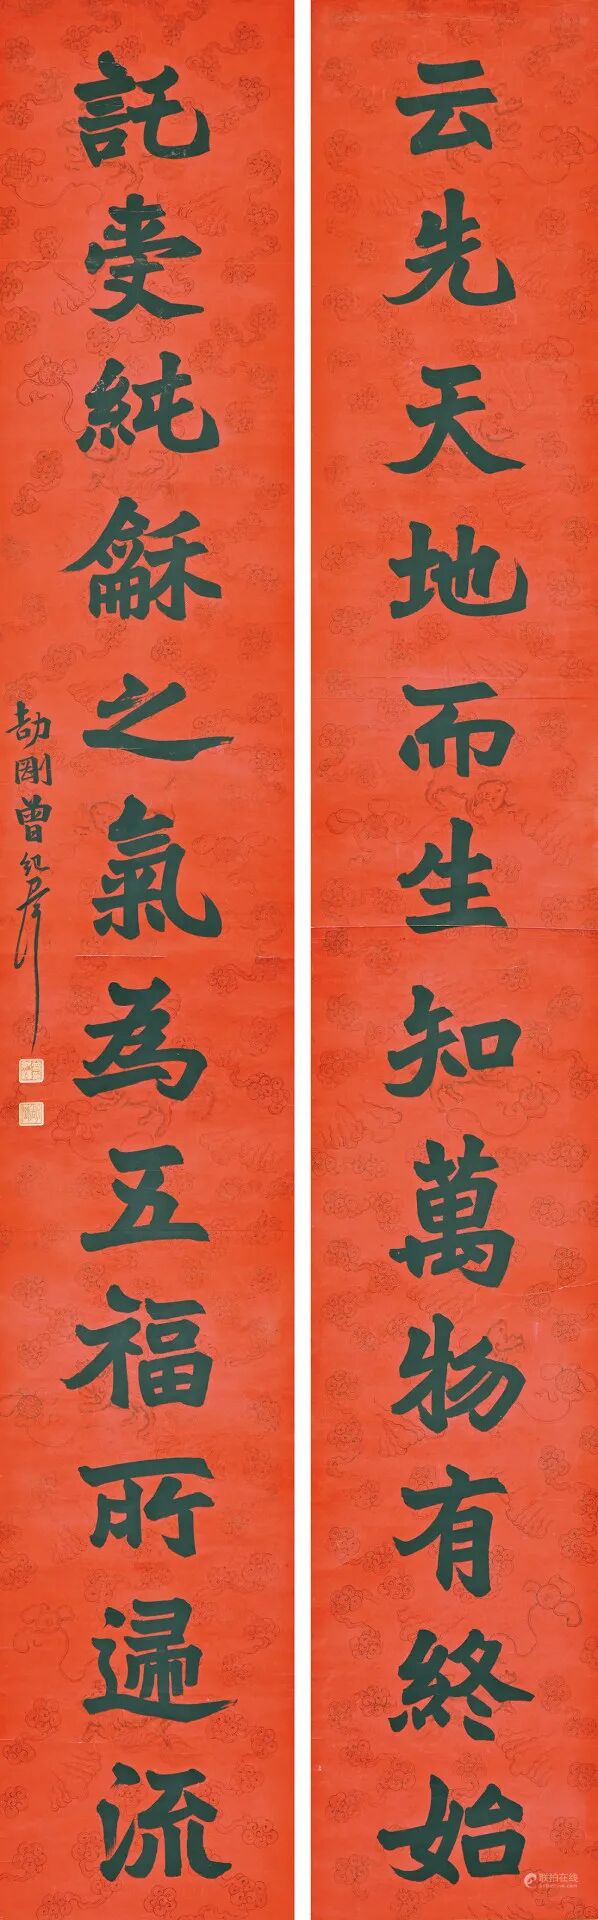 云先天地而生知萬物有終始
託受純龢之氣為五福所遝流
劼剛曾紀澤
联拍在线